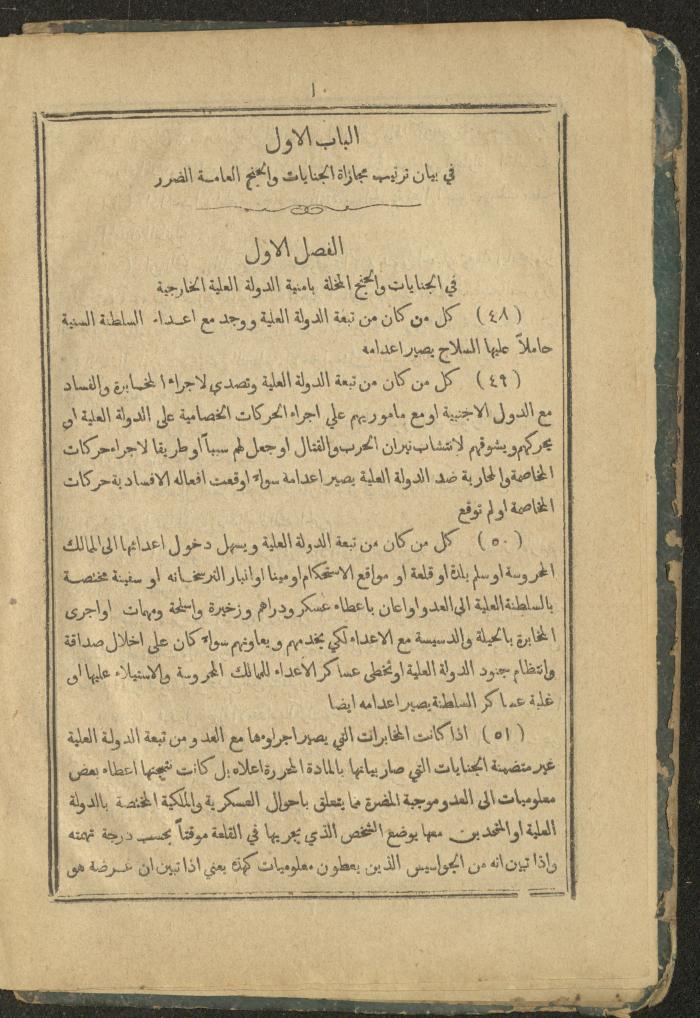 ١٠
الباب الاول
في بيان ترتيب مجازاة الجنايات والجنح العامة الضرر
الفصل الاول
في الجنايات والجنح المخلة بامنية الدولة العلية الخارجية
(٤٨) كل من كان من تبعة الدولة العلية ووجد مع اعداء السلطنة السنية
حاملاً عليها السلاح يصير اعدامه
(٤٩) كل من كان من تبعة الدولة العلية وتصدي لاجراء المخابرة والفساد
مع الدول الاجنبية او مع ماموريهم علي اجراء الحركات الخصامية على الدولة العلية او
يحركهم ويشوقهم لانتشاب نيران الحرب والقتال او جعل لهم سبباً او طريقا لاجراء حركات
المخاصمة والمحاربة ضد الدولة العلية يصير اعدامه سواء اوقعت افعاله الافسادية حركات
المخاصمة او لم توقع
(٥٠) كل من كان من تبعة الدولة العلية ويسهل دخول اعدائها الى الممالك
المحروسة او سلم بلدة او قلعة او مواقع الاستحكام او مينا او انبار الترسخانه او سفينة مختصة
بالسلطنة العلية الى العدو او اعان باعطاء عسكر ودراهم وزخيرة واسلحة ومهمات اواجرى
المخابرة بالحيلة والدسيسة مع الاعداء لكي يخدمهم ويعاونهم سواء كان على اخلال صداقة
وانتظام جنود الدولة العلية او تخطى عساكر الاعداء للممالك المحروسة والاستيلاء عليها او
غلبة عساكر السلطنة يصير اعدامه ايضا
(٥١) اذا كانت المخابرات التي يصير اجراوها مع العدو من تبعة الدولة العلية
غير متضمنة الجنايات التي صار بيانها بالمادة المحررة اعلاه بل كانت نتيجتها اعطاء بعض
معلوميات الى العدو موجبة المضرة مما يتعلق باحوال العسكرية والملكية المختصة بالدولة
العلية او المتحدين معها يوضع الشخص الذي يجريها في القلعة موقتاً بحسب درجة تهمته
واذا تبين انه من الجواسيس الذين يعطون معلوميات كهذه يعني اذا تبين ان غرضه هو